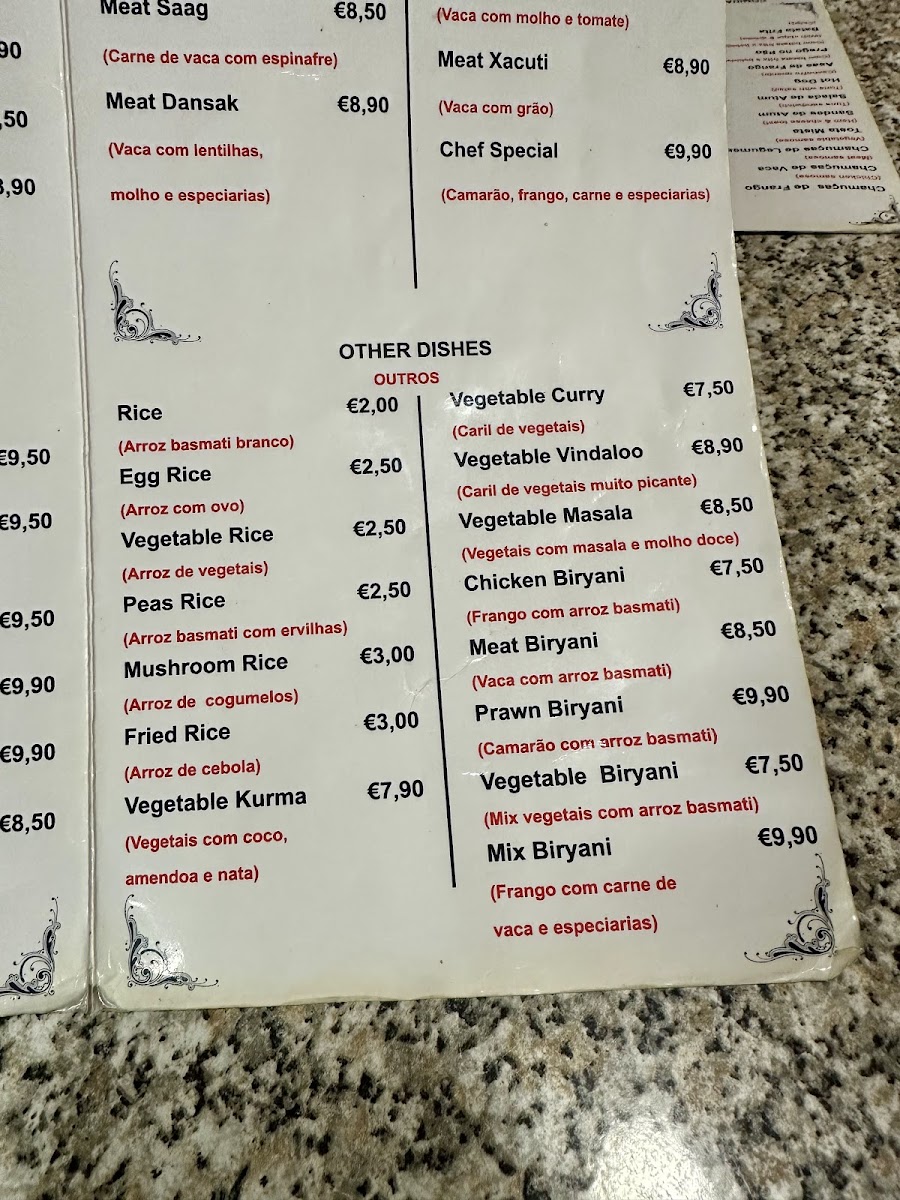 Meat Saag €8,50
(Carne de vaca com espinafre)
Meat Dansak €8,90
(Vaca com lentilhas,
molho e especiarias)
(Vaca com molho e tomate)
Meat Xacuti €8,90
(Vaca com grão)
Chef Special €9,90
(Camarão, frango, carne e especiarias)
OTHER DISHES
OUTROS
Rice €2,00
(Arroz basmati branco)
Egg Rice €2,50
(Arroz com ovo)
Vegetable Rice €2,50
(Arroz de vegetais)
Peas Rice €2,50
(Arroz basmati com ervilhas)
Mushroom Rice €3,00
(Arroz de cogumelos)
Fried Rice €3,00
(Arroz de cebola)
Vegetable Kurma €7,90
(Vegetais com coco,
amendoa e nata)
Vegetable Curry €7,50
(Caril de vegetais)
Vegetable Vindaloo €8,90
(Caril de vegetais muito picante)
Vegetable Masala €8,50
(Vegetais com masala e molho doce)
Chicken Biryani €7,50
(Frango com arroz basmati)
Meat Biryani €8,50
(Vaca com arroz basmati)
Prawn Biryani €9,90
(Camarão com arroz basmati)
Vegetable Biryani €7,50
(Mix vegetais com arroz basmati)
Mix Biryani €9,90
(Frango com carne de
vaca e especiarias)
€9,50
€9,50
€9,50
€9,90
€9,90
€8,50
Chamuças de Frango
(Chicken samosa)
Chamuças de Vaca
(Meat samosa)
Chamuças de Legumes
(Vegetable samosa)
Tosta Mista
(Ham & cheese toast)
Sandes de Atum
(Tuna sandwich)
Salada de Atum
(Tuna with salad)
Hot Dog
Asas de Frango
Prego no Pão
Batata Frita